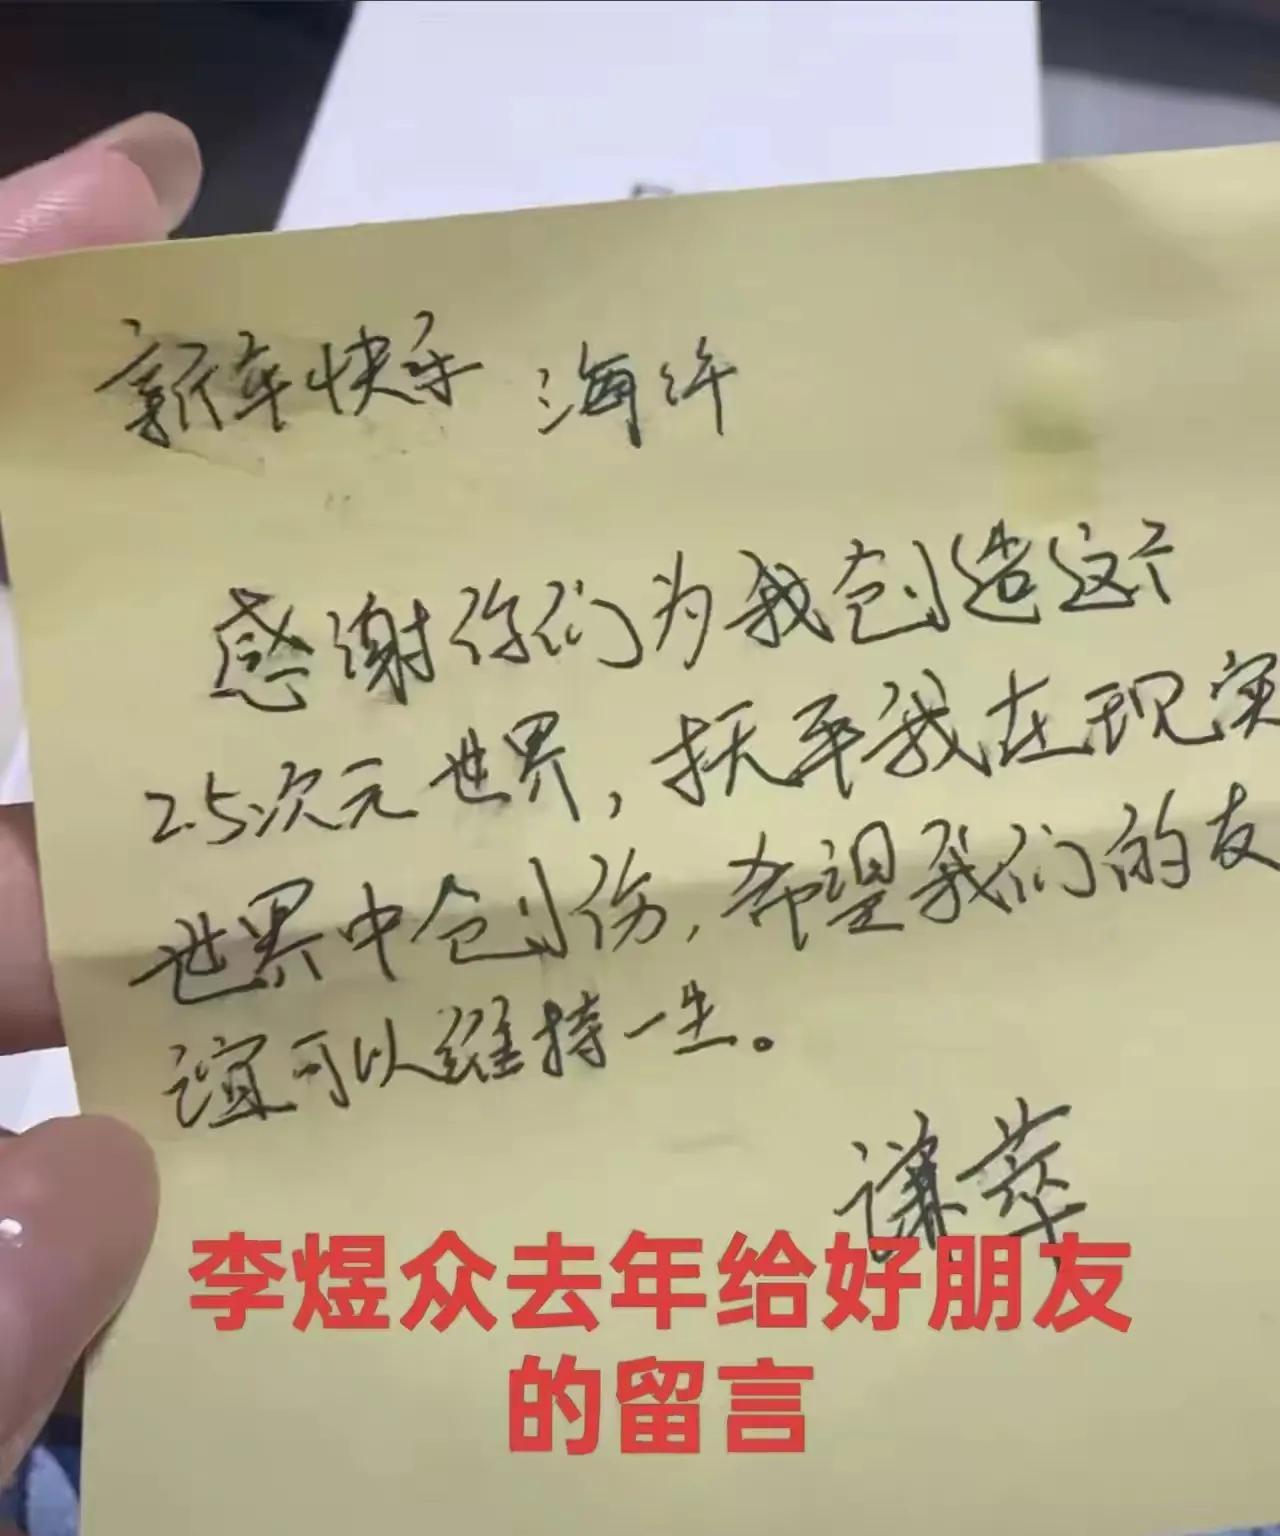 新年快乐 海洋
感谢你们为我创造这个
2.5次元世界，抚平我在现实
世界中创伤，希望我们的友
谊可以维持一生。
谦萃
李煜众去年给好朋友
的留言